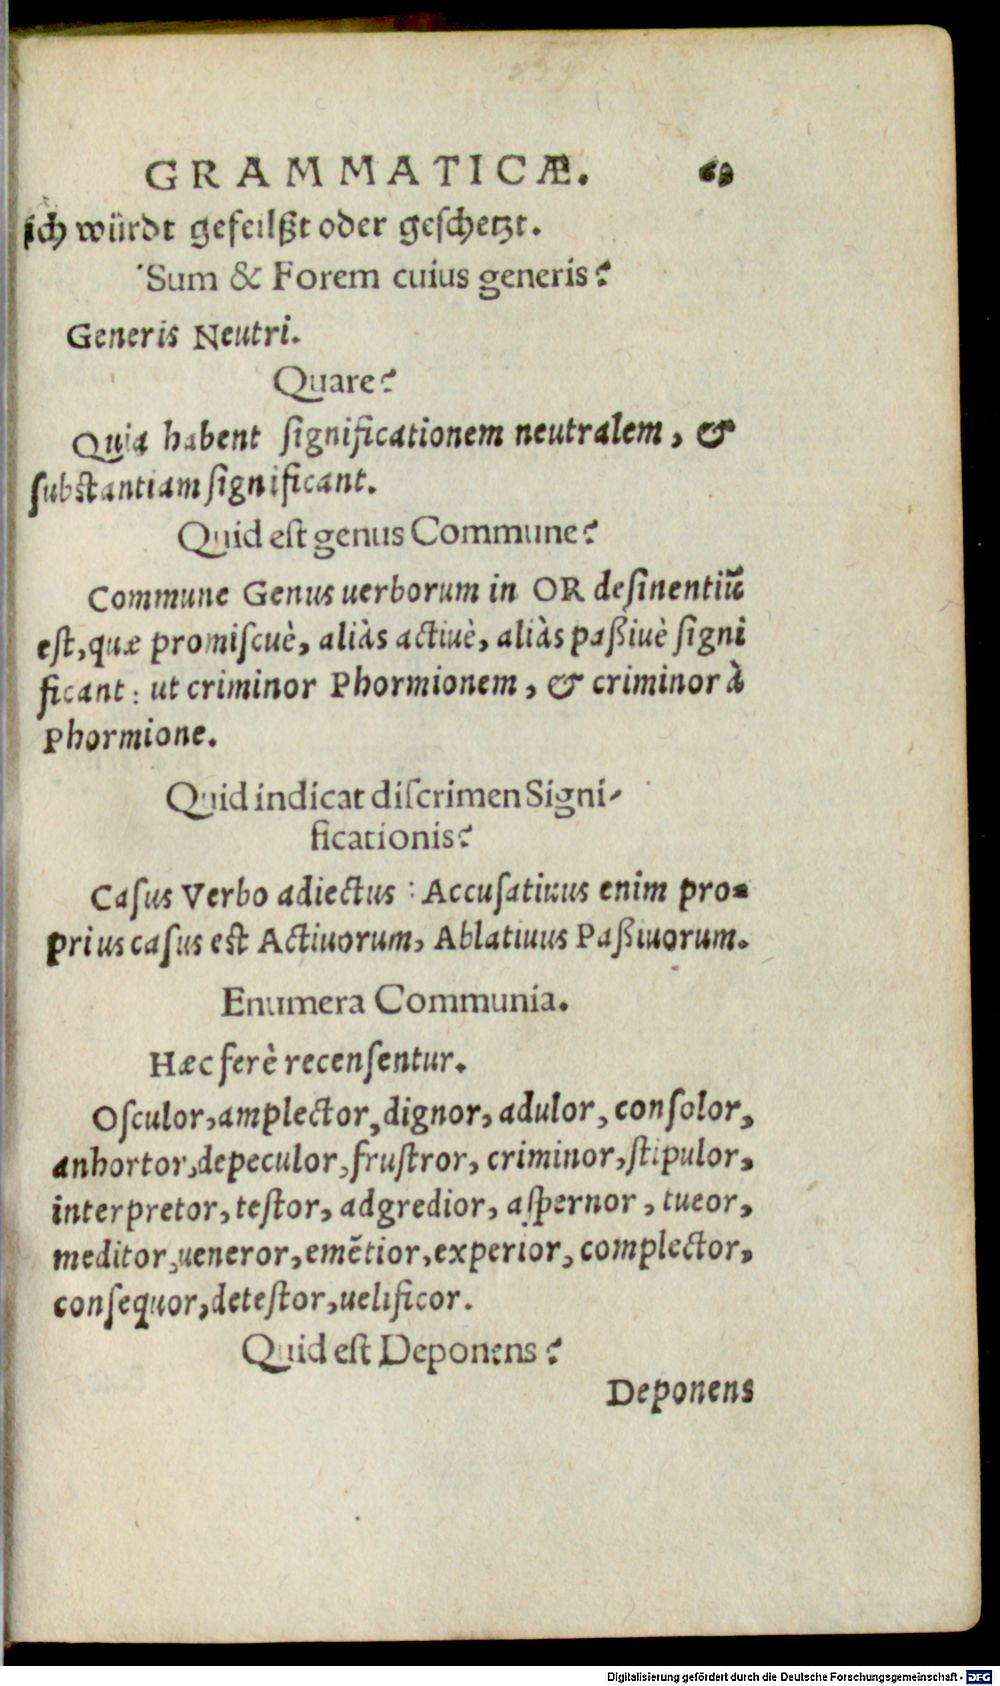 GRAMMATICÆ. 68
ich würdt gefeilßt oder geschetzt.
Sum & Forem cuius generis?
Generis Neutri.
Quare?
Quia habent ſignificationem neutralem, &
ſubſtantiam ſignificant.
Quid eſt genus Commune?
Commune Genus uerborum in OR deſinentiũ
eſt, quæ promiſcuè, aliàs actiuè, aliàs paßiuè ſigni
ficant: ut criminor Phormionem, & criminor à
Phormione.
Quid indicat diſcrimen Signi-
ficationis?
Caſus Verbo adiectus: Accuſatiuus enim pro-
prius caſus eſt Actiuorum, Ablatiuus Paßiuorum.
Enumera Communia.
Hæc ferè recenſentur.
Oſculor, amplector, dignor, adulor, conſolor,
anhortor, depeculor, fruſtror, criminor, ſtipulor,
interpretor, teſtor, adgredior, aſpernor, tueor,
meditor, ueneror, emẽtior, experior, complector,
conſequor, deteſtor, uelificor.
Quid eſt Deponens?
Deponens
Digitalisierung gefördert durch die Deutsche Forschungsgemeinschaft - DFG